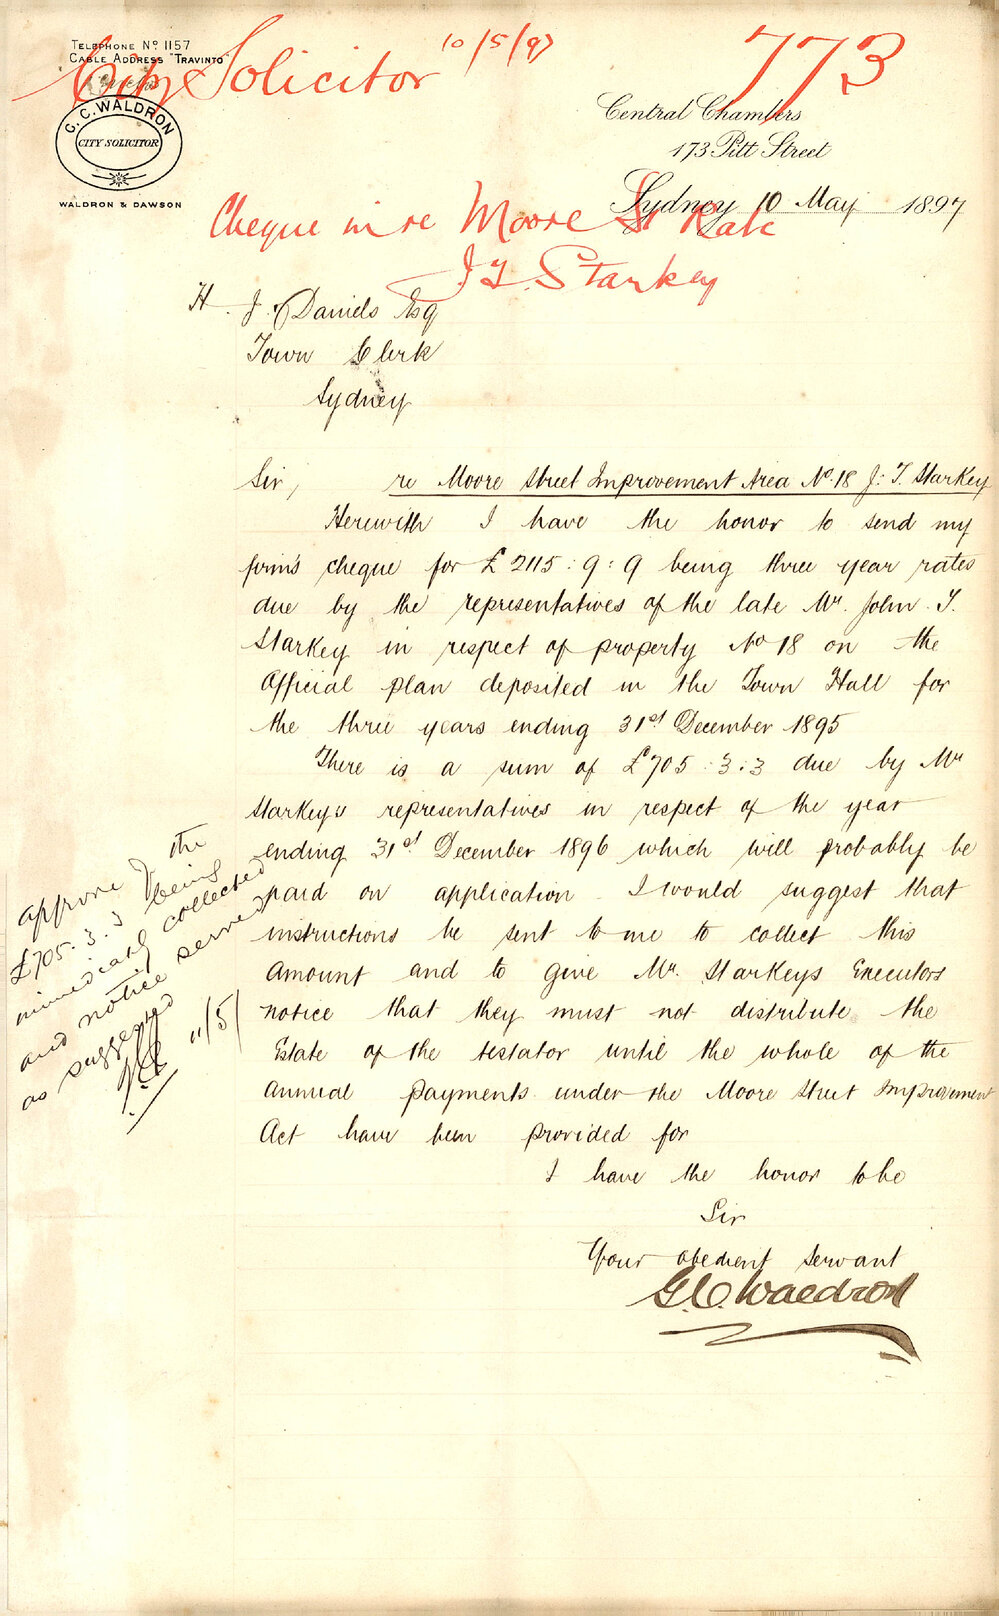 TELEPHONE No 1157
CABLE ADDRESS "TRAVINTO"
City Solicitor
10/5/97
773
G.C. WALDRON
CITY SOLICITOR
WALDRON & DAWSON
Central Chambers
173 Pitt Street
Sydney 10 May 1897
Cheque in re Moore St Rate
J T. Starkey
H. J. Daniels Esq
Town Clerk
Sydney
Sir, re Moore Street Improvement Area No. 18 J. T. Starkey
Herewith I have the honor to send my
firm's cheque for £2115:9:9 being three year rates
due by the representatives of the late Mr. John T.
Starkey in respect of property No 18 on the
Official plan deposited in the Town Hall for
the three years ending 31st December 1895
There is a sum of £705:3:3 due by Mr
Starkey's representatives in respect of the year
ending 31st December 1896 which will probably be
paid on application I would suggest that
instructions be sent to me to collect this
amount and to give Mr. Starkeys Executors
notice that they must not distribute the
Estate of the testator until the whole of the
annual payments under the Moore Street Improvement
Act have been provided for
I have the honor to be
Sir
Your obedient servant
G. C. Waldron
approve of the
£705.3.3 being
immediately collected
and notice served
as suggested
11/5/